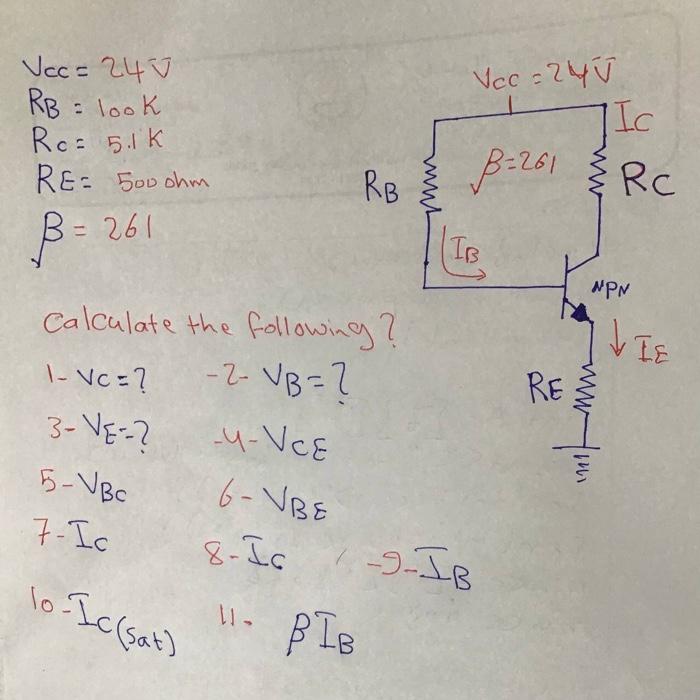 Vcc = 24V
RB = 100K
Rc = 5.1K
RE = 500 ohm
β = 261
Vcc = 24V
Ic
β=261
RB
Rc
IB
NPN
IE
RE
Calculate the following?
1- Vc=? -2- VB=?
3- VE=? -4- VCE
5- VBC 6- VBE
7- Ic 8- IC -9- IB
10- Ic(sat) 11- βIB